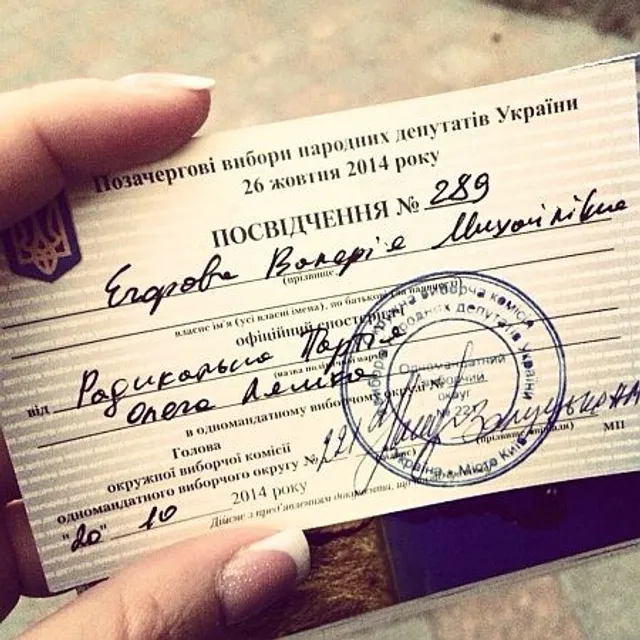 Позачергові вибори народних депутатів України
26 жовтня 2014 року
ПОСВІДЧЕННЯ № 289
Єгорова Валерія Михайлівна
(прізвище,
власне ім'я (усі власні імена), по батькові (за наявності)
офіційний спостерігач
від Радикальна Партія
(назва політичної партії
Олега Ляшка
в одномандатному виборчому окрузі №
Голова
окружної виборчої комісії
одномандатного виборчого округу № 221
(підпис) (прізвище, ініціали) МП
"20" 10 2014 року
Дійсне з пред'явленням документа, що
Одномандатний
виборчий
округ
№ 221
Україна • Місто Київ